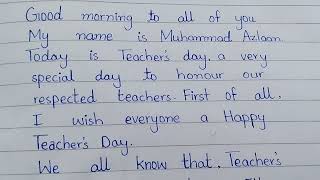 Good morning to all of you
My name is Muhammad Azlaan
Today is Teacher's day, a very
special day to honour our
respected teachers. First of all,
I wish everyone a Happy
Teacher's Day.
We all know that, Teacher's